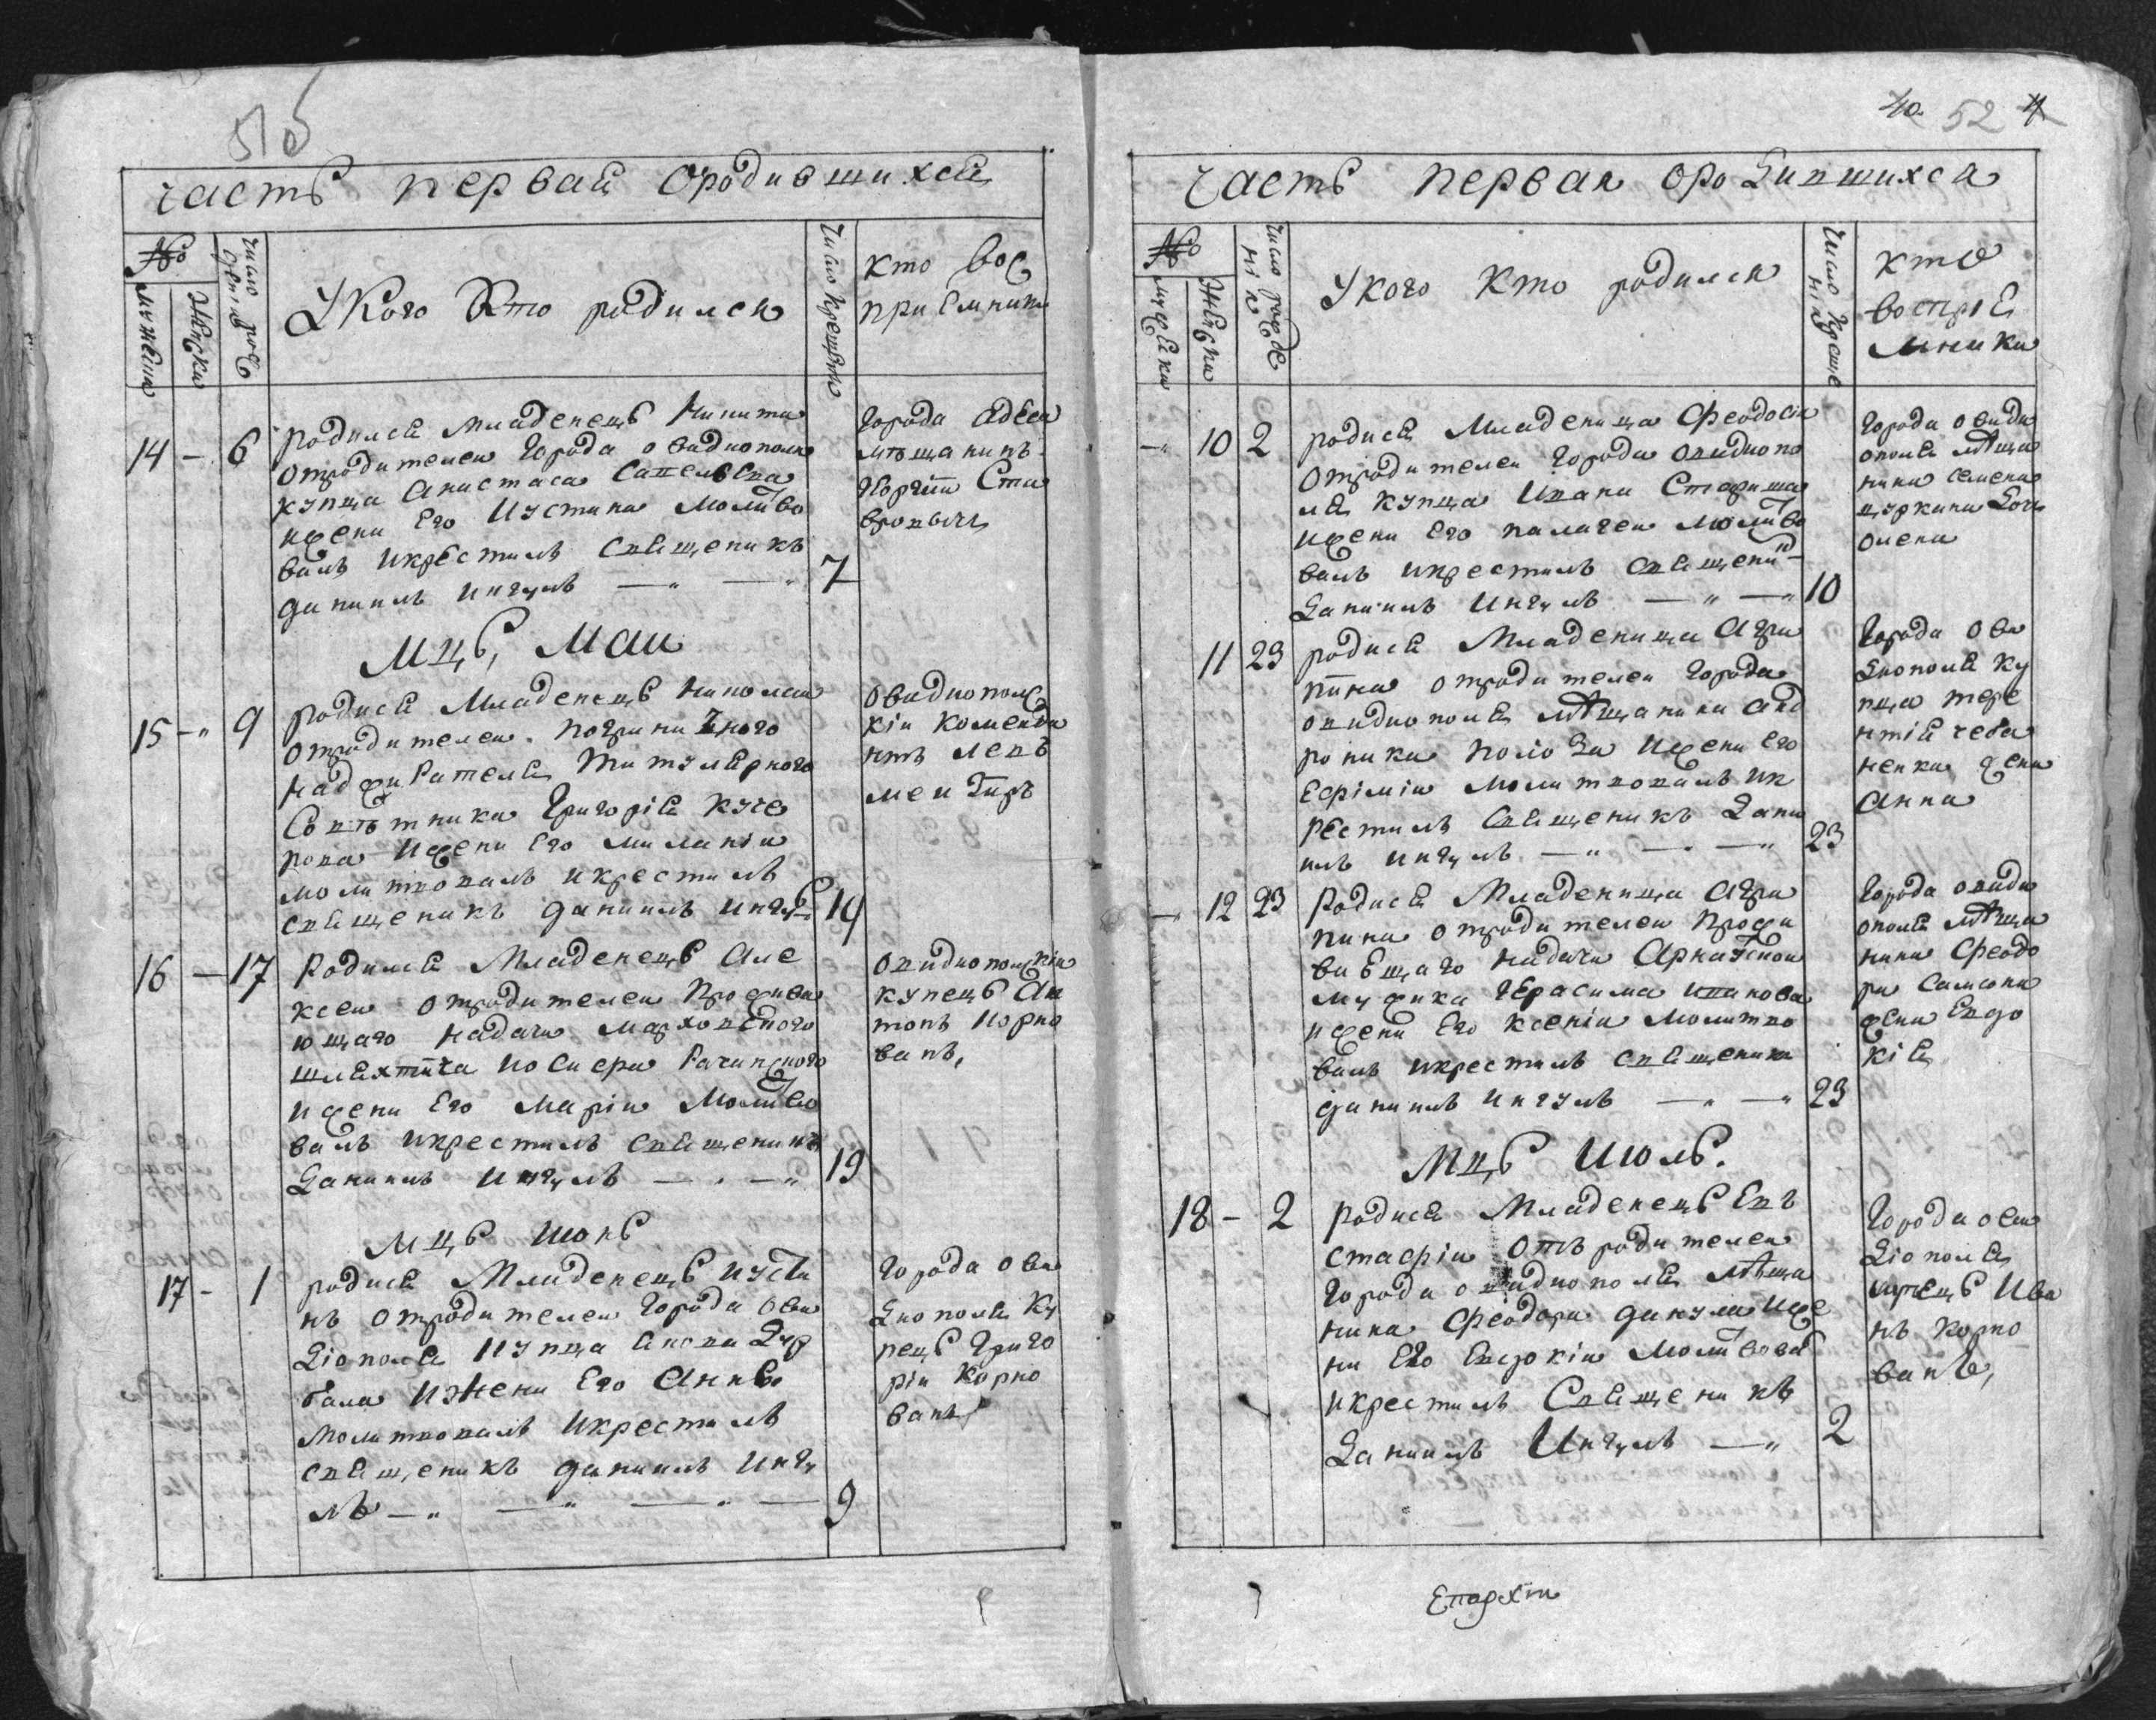 51б
часть первая ородившихся
№
мужеска
женска
число рож
дения
Укого Кто родился
число крещения
кто вос
приемники
14 - 6
Родился младенецъ Никита
отродителей Города овидиополя
купца Анастаса
ижени Его Иустина Молитво
валъ икрестилъ священикъ
даниилъ Ингулъ — " — " 7
Города Адеса
мѣщанинъ
Георгiи Ста
Мцъ, Маи
15 - " 9
родися Младенецъ Николаи
отродителеи пограничного
надзирателя Титулярного
Совѣтника Григорiя Куче
рова ижени Его Миланiи
молитвовалъ икрестилъ
священикъ даниилъ Ингулъ 14
Овидиополс
кiи Коменда
нтъ Леѡ
16 — 17
Родился Младенецъ Але
ксеи отродителеи Прожива
ющаго надачи
шляхтича Иосифа Рачинского
ижени Его Марiи Молитво
валъ икрестилъ священикъ
Даниилъ Ингулъ — . — " 19
Овидиополскiи
купецъ Ан
тонъ Корно
ванъ,
Мцъ Июнь
17 - 1
родися Младенецъ Иусти
нъ отродителеи Города Ови
дiополя Купца
ижени Его Анны
Молитвовалъ Икрестилъ
священикъ даниилъ Ингу
лъ — " — " — " — 9
Города Ови
диополя Ку
пецъ Григо
рiи Корно
ванъ
52
часть первая ородившихся
№
мужеска
женска
число рожде
нiя
Укого Кто родился
число креще
нiя
кто
воспрiе
мники
- " 10 2
родися Младеница Феодосiя
отродителеи города овидиопо
ля купца Ивана
ижени Его Палагеи молитво
валъ икрестилъ священикъ
Даниилъ Ингулъ — " — " 10
Города овиди
ополя мѣща
нина Семена
Дочь
Олена
11 23
родися Младеница Агри
пина отродителеи Города
овидиополя мѣщанина Анд
роника ижени Его
Ефiмiи молитвовалъ ик
рестилъ Священикъ Дани
илъ Ингулъ — " — . — " 23
Города Ови
диополя Ку
пца Тере
нтiя Чеба
ненка жена
Анна
— " 12 23
Родися Младеница Агри
пина отродителеи Прожи
ваѣщаго надачи
мужика Герасима Иванова
ижени Его Ксенiи Молитво
валъ икрестилъ священикъ
даниилъ Ингулъ — " — " 23
Города овиди
ополя мѣща
нина Феодо
ра
жена Евдо
кiя
Мцъ Июль.
18 - 2
родися Младенецъ Евъ
стафiи Отъ родителеи
Города овидиополя мѣща
нина Феодора ижe
ни Его Евдокiи Молитвовалъ
икрестилъ Священикъ
Даниилъ Ингулъ — " 2
Города ови
дiополя
купецъ Ива
нъ Корно
ванъ,
Епархiи